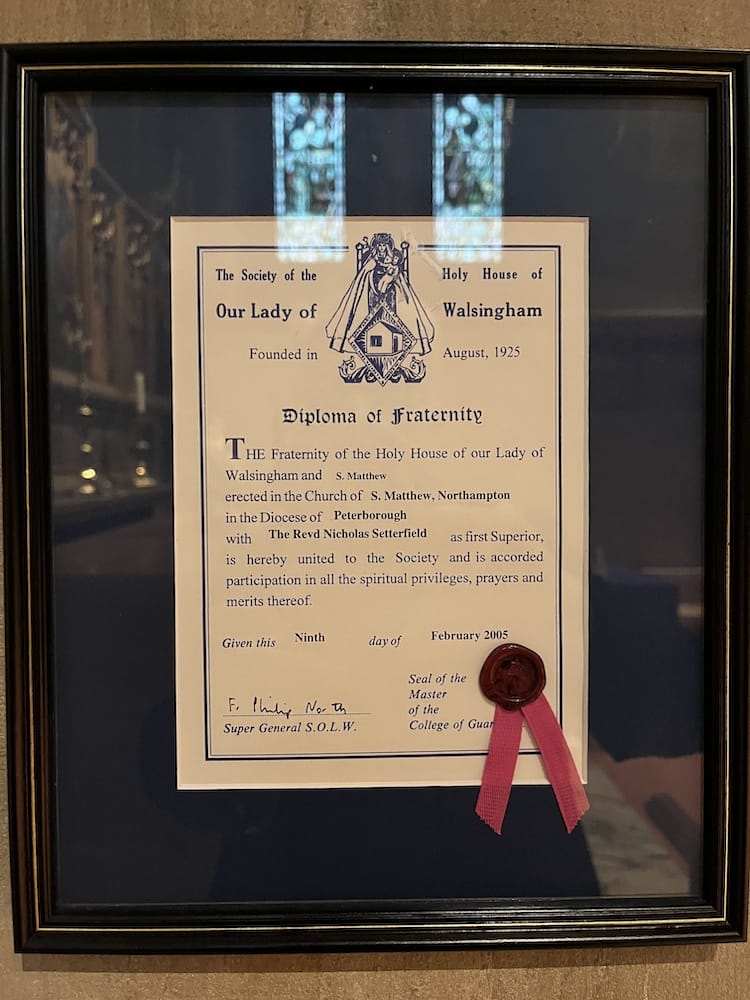 The Society of the Holy House of
Our Lady of Walsingham
Founded in August, 1925
Diploma of Fraternity
THE Fraternity of the Holy House of our Lady of
Walsingham and S. Matthew
erected in the Church of S. Matthew, Northampton
in the Diocese of Peterborough
with The Revd Nicholas Setterfield as first Superior,
is hereby united to the Society and is accorded
participation in all the spiritual privileges, prayers and
merits thereof.
Given this Ninth day of February 2005
Seal of the
Master
of the
College of
Fr Philip North
Super General S.O.L.W.